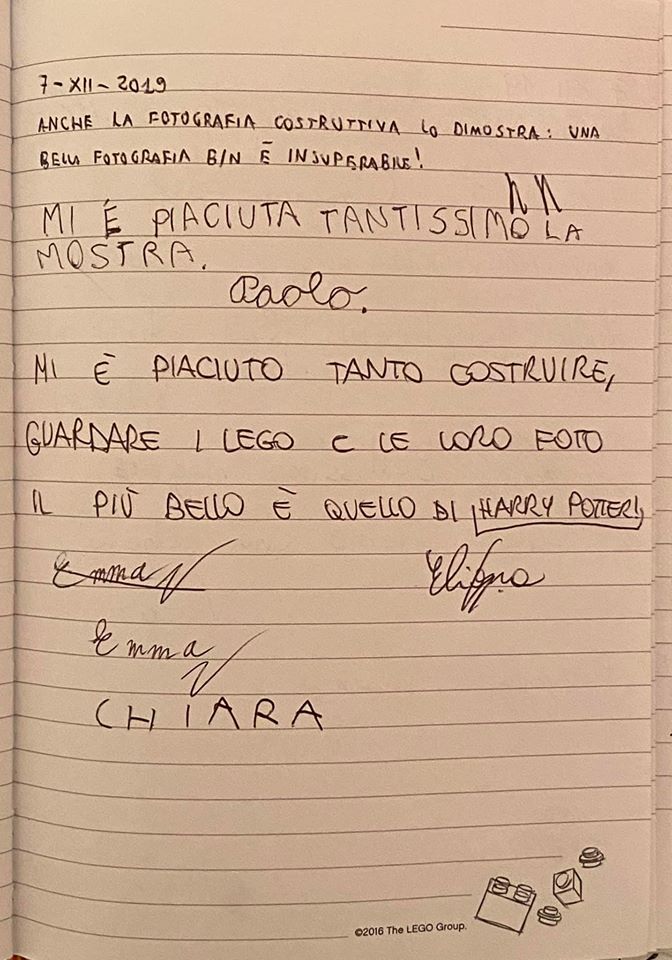 7-XII-2019
ANCHE LA FOTOGRAFIA COSTRUTTIVA LO DIMOSTRA: UNA
BELLA FOTOGRAFIA B/N È INSUPERABILE!
MI È PIACIUTA TANTISSIMO LA
MOSTRA.
Paolo.
MI È PIACIUTO TANTO COSTRUIRE,
GUARDARE I LEGO E LE LORO FOTO
IL PIÙ BELLO È QUELLO DI HARRY POTTER!
Emma
Emma
CHIARA
©2016 The LEGO Group.